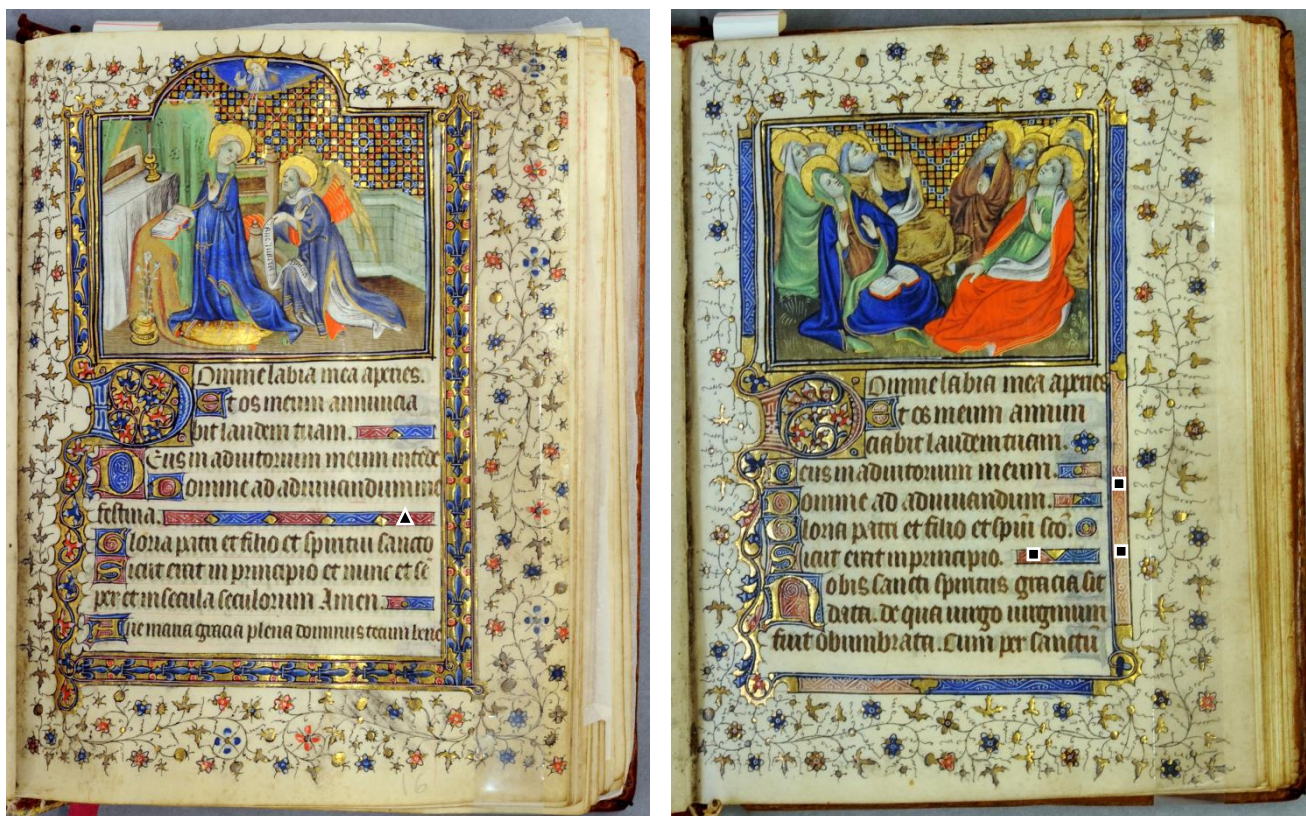 Omine labia mea aperies.
Et os meum annuncia
bit laudem tuam.
Deus in adiutorium meum intēde
Domine ad adiuuandum me
festina.
Gloria patri et filio et spiritui sancto
Sicut erat in principio et nunc et sē
per et in secula seculorum Amen.
Aue maria gracia plena dominus tecum bene
Domine labia mea aperies
Et os meum annun
ciabit laudem tuam.
Deus in adiutorium meum.
Domine ad adiuuandum.
Gloria patri et filio et spūi sctō.
Sicut erat in principio.
Nobis sancti spiritus gracia sit
data. de qua uirgo uirginum
fuit obumbrata. Cum per sanctū